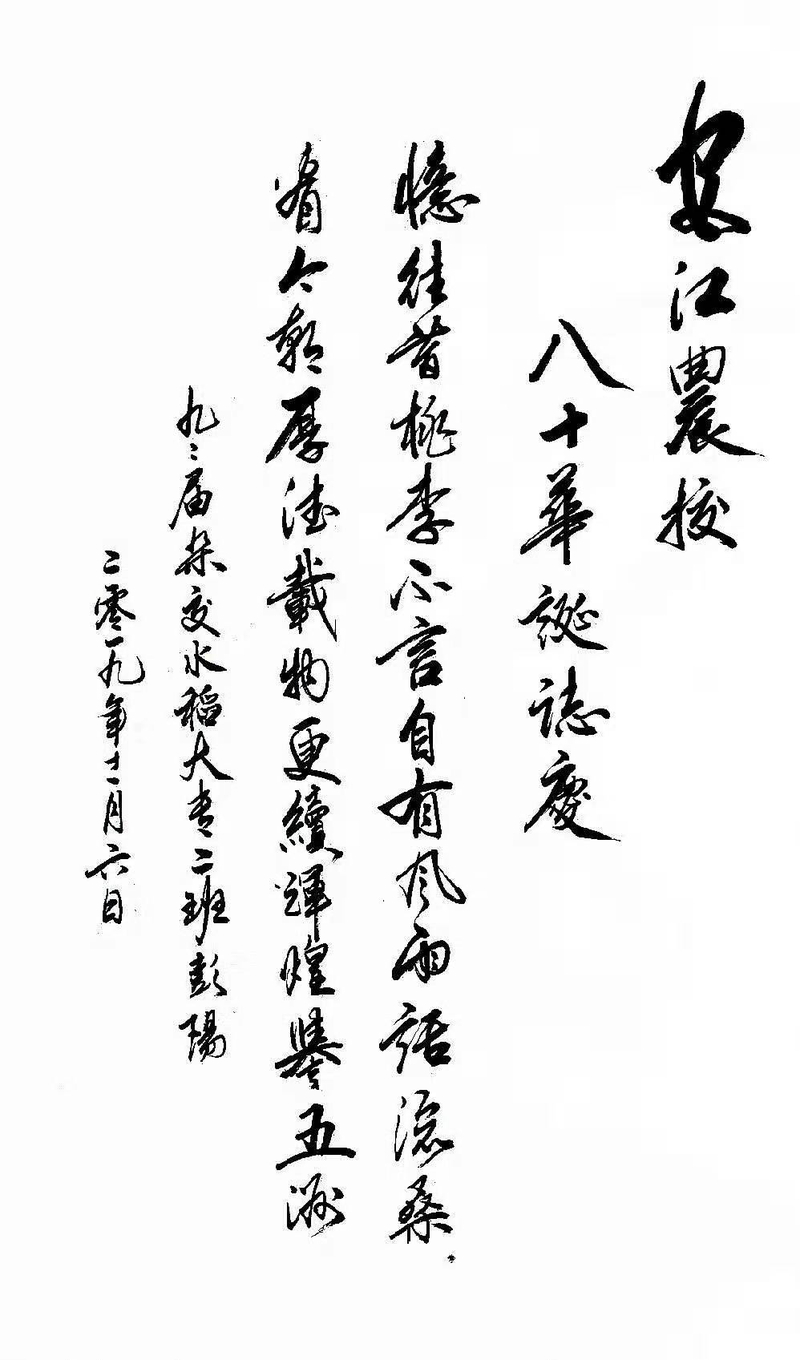 安江農校
八十華誕誌慶
憶往昔桃李不言自有風雨話滄桑
看今朝厚德載物更續輝煌譽五洲
九二届杂交水稻大专二班彭陽
二零一九年十一月六日